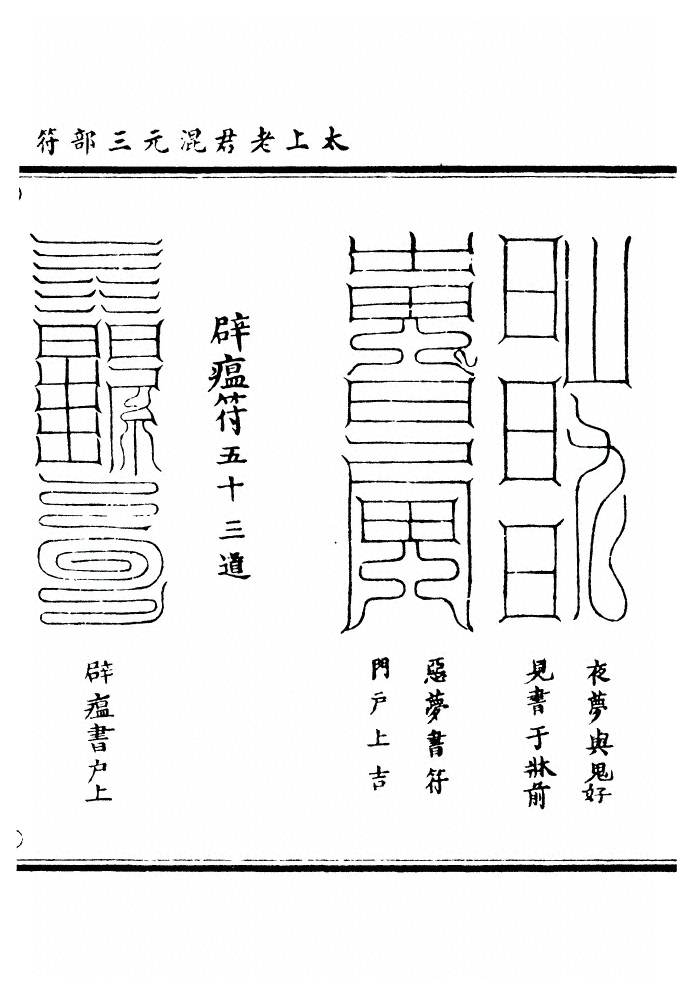 太上老君混元三部符
夜夢與鬼好
見書于牀前
惡夢書符
門戶上吉
辟瘟符五十三道
辟瘟書戶上